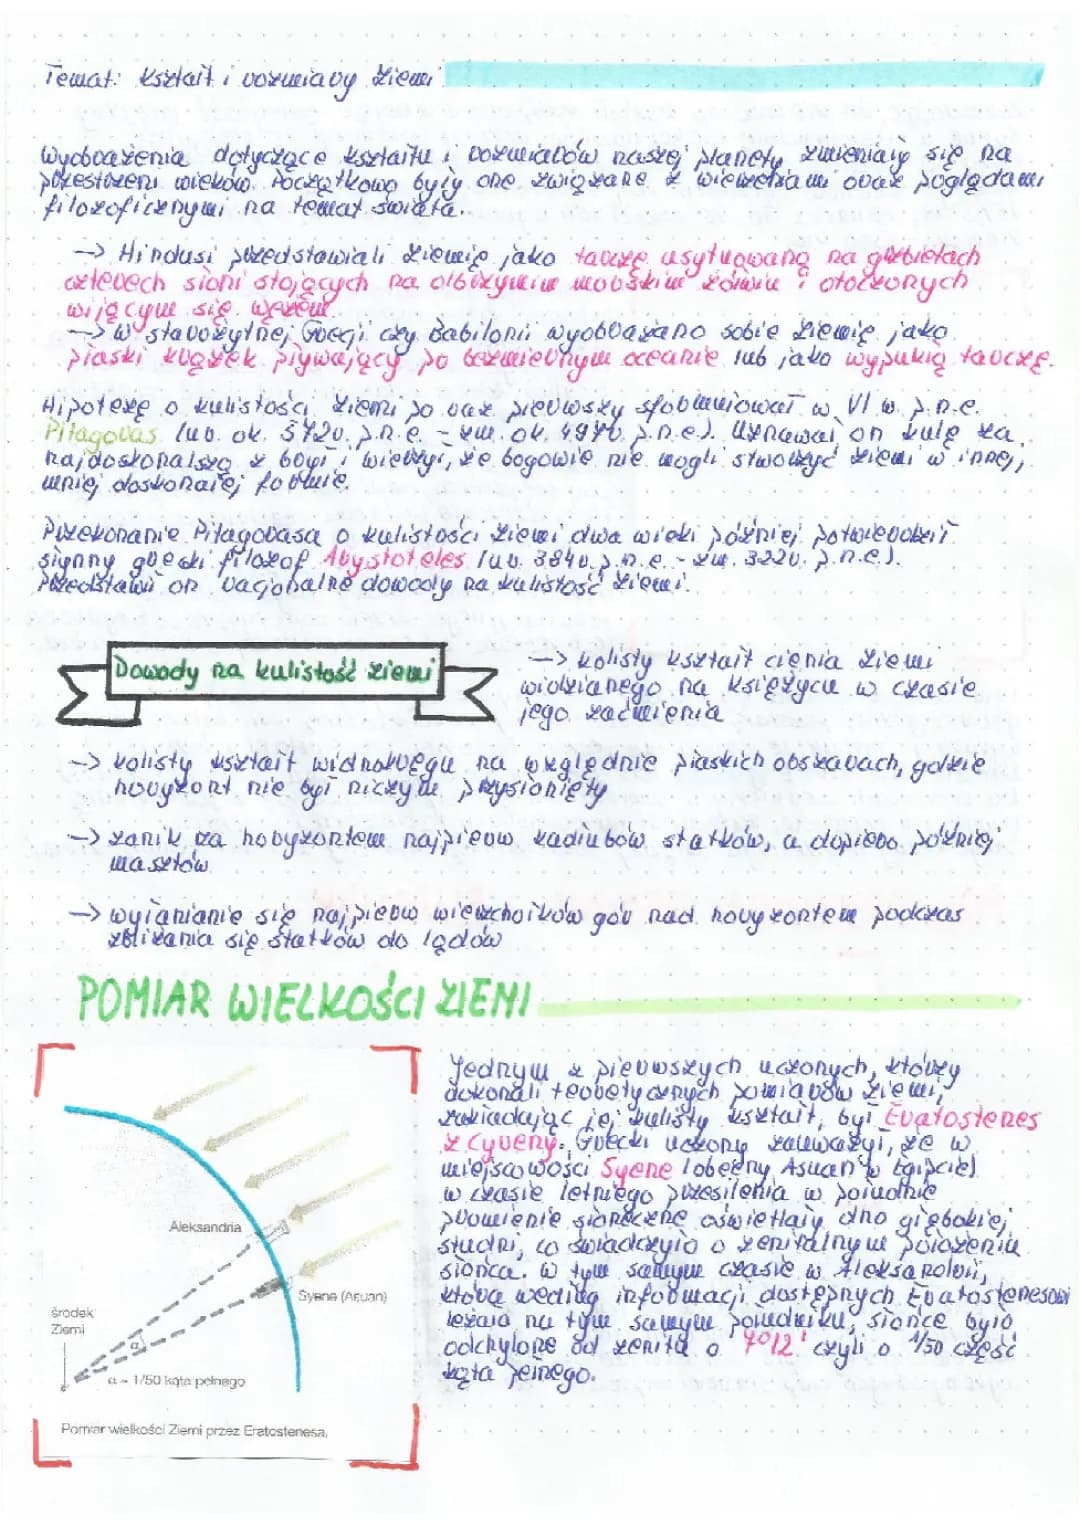 Temat: Kształt i rozmiary Ziemi
Wyobrażenia dotyczące kształtu i rozmiarów naszej planety zmieniały się na
przestrzeni wieków. Początkowo były one związane z wierzeniami oraz poglądami
filozoficznymi na temat świata.
-> Hindusi przedstawiali Ziemię jako tarczę usytuowaną na grzbietach
czterech słoni stojących na olbrzymim morskim żółwiu i otoczonych
wijącym się wężem.
-> w starożytnej Grecji czy Babilonii wyobrażano sobie Ziemię jako
płaski krążek pływający po bezmiernym oceanie lub jako wypukłą tarczę.
Hipotezę o kulistości Ziemi po raz pierwszy sformułował w VI w. p.n.e.
Pitagoras (ur. ok. 572r. p.n.e. - zm. ok. 497r. p.n.e.). Uznawał on kulę za
najdoskonalszą z brył i wierzył, że bogowie nie mogli stworzyć Ziemi w innej,
mniej doskonałej formie.
Przekonanie Pitagorasa o kulistości Ziemi dwa wieki później potwierdził
słynny grecki filozof Arystoteles (ur. 384r. p.n.e. - zm. 322r. p.n.e.).
Przedstawił on racjonalne dowody na kulistość Ziemi.
Dowody na kulistość Ziemi
-> kolisty kształt cienia Ziemi
widzianego na Księżycu w czasie
jego zaćmienia
-> kolisty kształt widnokręgu na względnie płaskich obszarach, gdzie
horyzont nie był niczym przysłonięty
-> zanik za horyzontem najpierw kadłubów statków, a dopiero później
masztów
-> wyłanianie się najpierw wierzchołków gór nad horyzontem podczas
zbliżania się statków do lądów
POMIAR WIELKOŚCI ZIEMI
Jednym z pierwszych uczonych, którzy
dokonali teoretycznych pomiarów Ziemi,
zakładając jej kulisty kształt, był Eratostenes
z Cyreny. Grecki uczony zauważył, że w
miejscowości Syene (obecny Asuan w Egipcie)
w czasie letniego przesilenia w południe
promienie słoneczne oświetlały dno głębokiej
studni, co świadczyło o zenitalnym położeniu
słońca. W tym samym czasie w Aleksandrii,
która według informacji dostępnych Eratostenesowi
leżała na tym samym południku, słońce było
odchylone od zenitu o 7°12' czyli o 1/50 część
kąta pełnego.
Aleksandria
Syene (Asuan)
środek
Ziemi
α
α - 1/50 kąta pełnego
Pomiar wielkości Ziemi przez Eratostenesa.